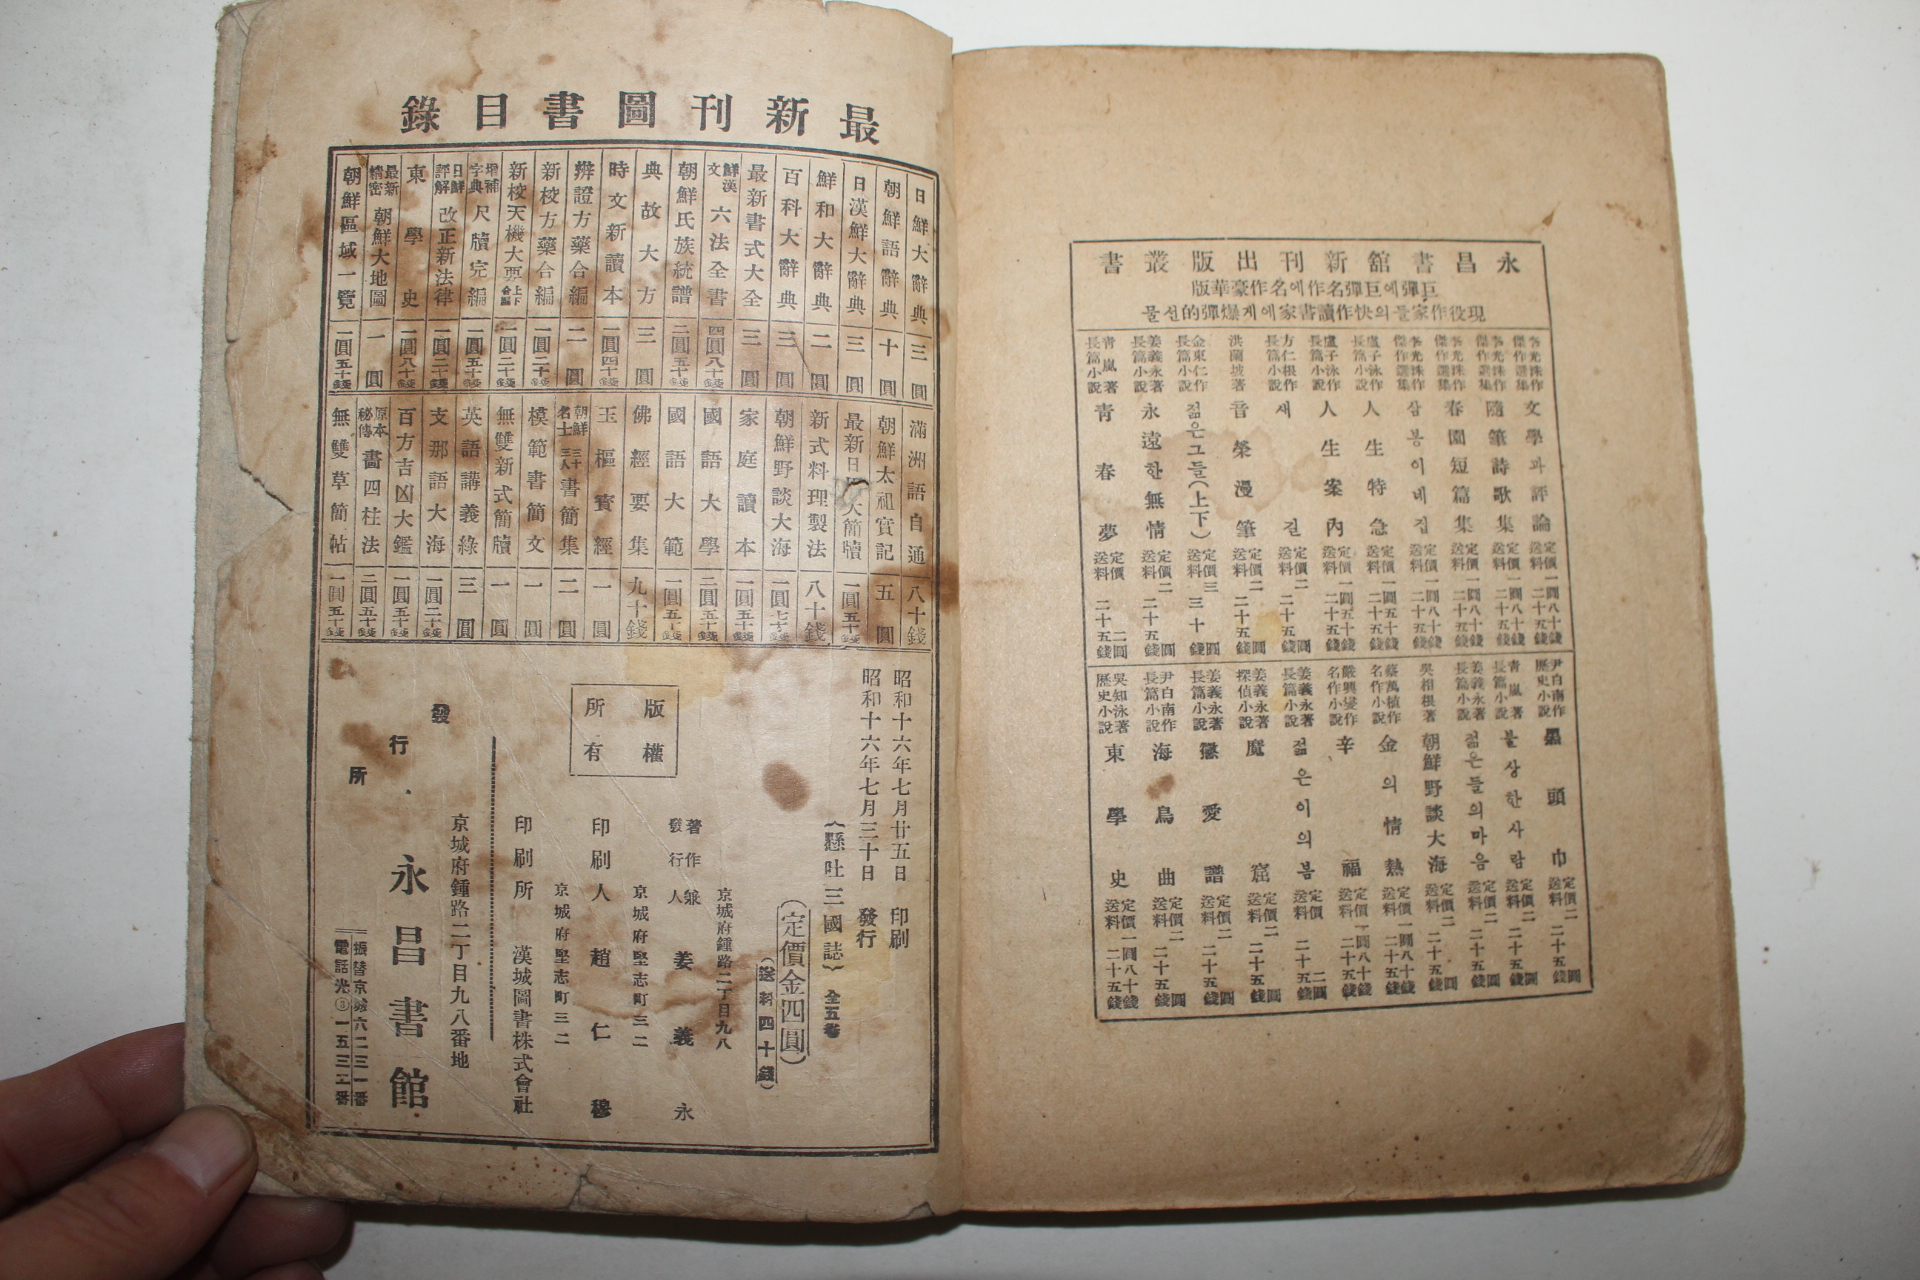 最新刊圖書目錄
日鮮大辭典 三圓
朝鮮語辭典 十圓
日漢鮮大辭典 三圓
鮮和大辭典 二圓
百科大辭典 三圓
最新書式大全 三圓
鮮漢文 六法全書 四圓八十錢
朝鮮氏族統譜 二圓五十錢
典故大方 三圓
時文新讀本 一圓四十錢
辨證方藥合編 二圓
新校方藥合編 一圓二十錢
新校天機大要 上下合編 一圓二十錢
增補字典 尺牘完編 一圓五十錢
日鮮評解 改正新法律 一圓二十錢
東學史 一圓八十錢
最新精密 朝鮮大地圖 一圓
朝鮮區域一覽 一圓五十錢
滿洲語自通 八十錢
朝鮮太祖實記 五圓
最新日用大簡牘 一圓五十錢
新式料理製法 八十錢
朝鮮野談大海 一圓七十錢
家庭讀本 一圓五十錢
國語大學 二圓五十錢
國語大範 一圓五十錢
佛經要集 九十錢
玉樞寶經 一圓
朝鮮名士 三十三人書簡集 二圓
模範書簡文 一圓
無雙新式簡牘 一圓
英語講義綠 三圓
支那語大海 一圓二十錢
百方吉凶大鑑 一圓五十錢
原本秘傳 畵四柱法 二圓五十錢
無雙草簡帖 一圓五十錢
昭和十六年七月廿五日 印刷
昭和十六年七月三十日 發行
(懸吐三國誌) 全五卷
(定價金四圓)
(送料四十錢)
版權所有
京城府鍾路二丁目九八
著作兼發行人 姜義永
京城府堅志町三二
印刷人 趙仁穆
京城府堅志町三二
印刷所 漢城圖書株式會社
京城府鍾路二丁目九八番地
發行所 永昌書館
振替京城六二三一番
電話光③一五三二番
永昌書館新刊出版叢書
巨彈에巨彈名作에名作豪華版
現役作家들의快作讀書家에게爆彈的선물
李光洙作 傑作選集 文學과評論 定價一圓八十錢 送料二十五錢
李光洙作 傑作選集 隨筆詩歌集 定價一圓八十錢 送料二十五錢
李光洙作 傑作選集 春園短篇集 定價一圓八十錢 送料二十五錢
李光洙作 傑作選集 삼봉이네집 定價一圓八十錢 送料二十五錢
盧子泳作 長篇小說 人生特急 定價一圓五十錢 送料二十五錢
盧子泳作 長篇小說 人生案內 定價一圓五十錢 送料二十五錢
方仁根作 長篇小說 새길 定價二圓 送料二十五錢
洪蘭坡著 音樂漫筆 定價二圓 送料二十五錢
金東仁作 長篇小說 젊은그들(上下) 定價三圓 送料三十錢
姜義永著 長篇小說 永遠한無情 定價二圓 送料二十五錢
靑嵐著 長篇小說 靑春夢 定價二圓 送料二十五錢
尹白南作 歷史小說 黑頭巾 定價二圓 送料二十五錢
靑嵐著 長篇小說 불상한사람 定價二圓 送料二十五錢
姜義永著 長篇小說 젊은들의마음 定價二圓 送料二十五錢
吳相根著 朝鮮野談大海 定價二圓 送料二十五錢
蔡萬植作 名作小說 金의情熱 定價一圓八十錢 送料二十五錢
嚴興燮作 名作小說 辛福 定價一圓八十錢 送料二十五錢
姜義永著 長篇小說 젊은이의봄 定價二圓 送料二十五錢
姜義永著 探偵小說 魔窟 定價二圓 送料二十五錢
姜義永著 長篇小說 戀愛譜 定價二圓 送料二十五錢
尹白南作 長篇小說 海鳥曲 定價二圓 送料二十五錢
吳知泳著 歷史小說 東學史 定價一圓八十錢 送料二十五錢